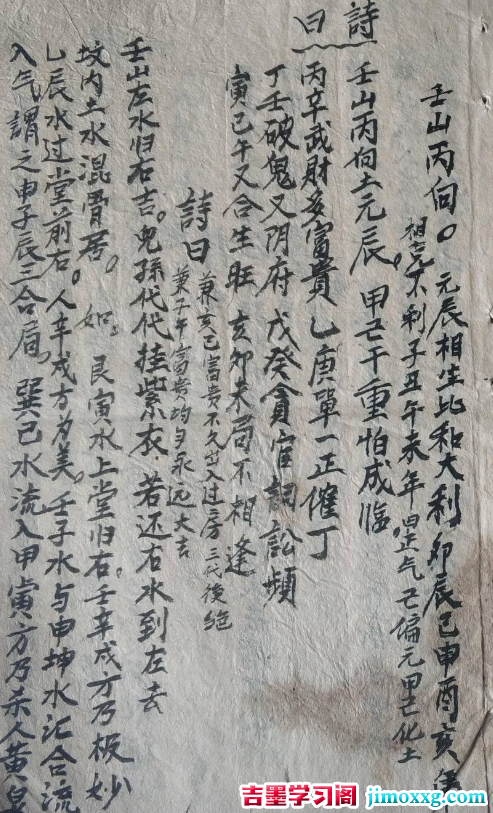 壬山丙向。元辰相生比和大利卯辰巳申酉亥年
相克不利子丑午未年 四正气 正偏元甲己化土
詩曰
壬山丙向土元辰。甲己干重怕戌臨
丙辛武財多富貴 乙庚單一正催丁
丁壬破鬼又阴府 戊癸貪官詞訟頻
寅巳午又合生旺 亥卯未局不相逢
詩曰
兼亥巳富贵不久 入过房 三代後绝
兼子午富贵均匀永远大吉
壬山左水归右吉。兒孫代代挂紫衣。若还右水到左去
坟内土水混骨居。如艮寅水上堂归右。壬辛戌方乃极妙
乙辰水过堂前右。人辛戌方为美。壬子水与申坤水汇合流
入气謂之申子辰三合局。巽巳水流入甲寅方乃杀人黄
吉墨学习阁 jimoxxg.com